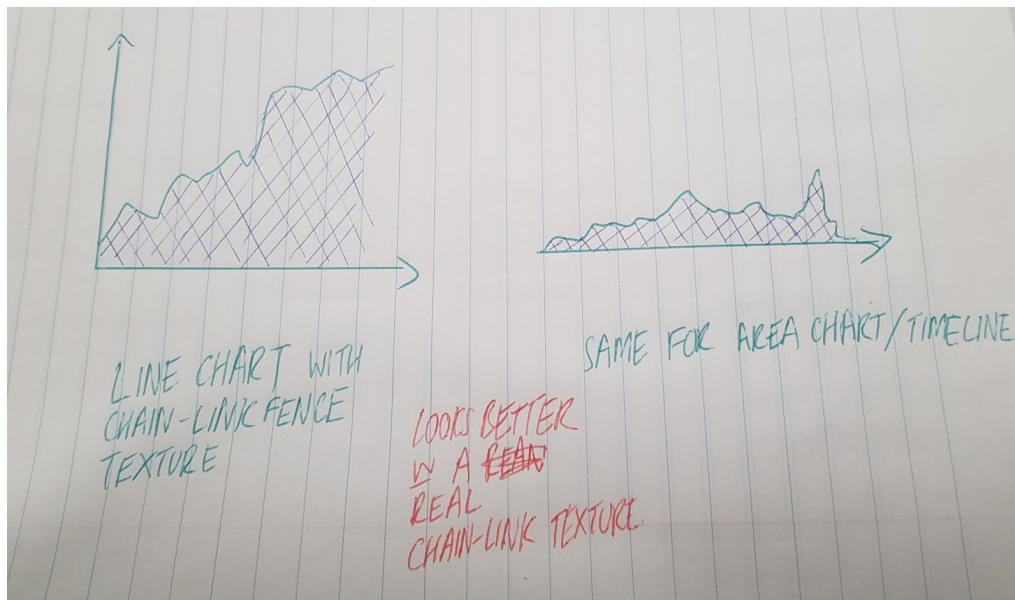 LINE CHART WITH
CHAIN-LINK FENCE
TEXTURE
SAME FOR AREA CHART/TIMELINE
LOOKS BETTER
W A
REAL
CHAIN-LINK TEXTURE